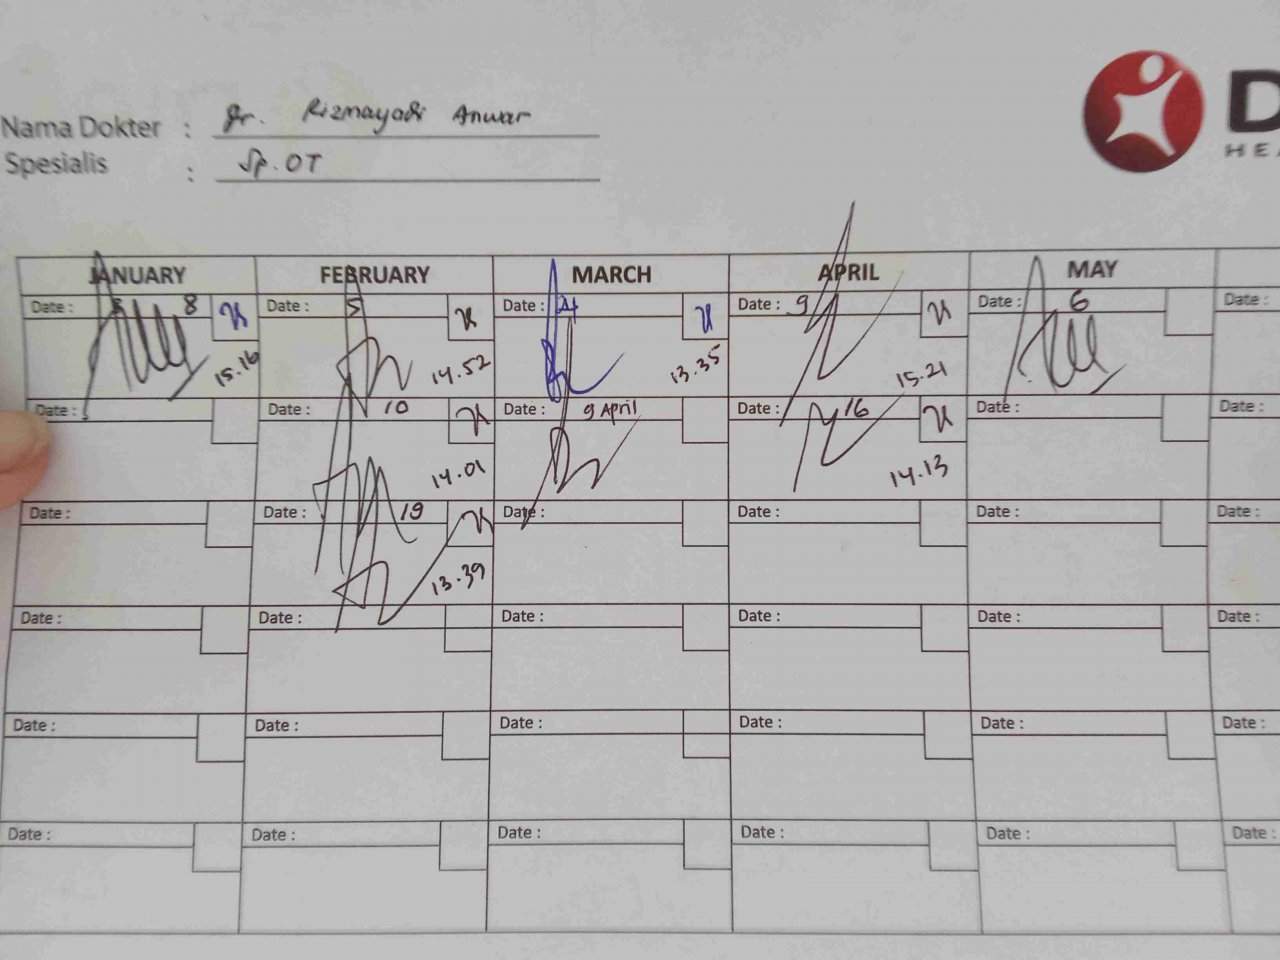 Nama Dokter : dr. Rizmayadi Anwar
Spesialis : Sp.OT
D
HEA
JANUARY FEBRUARY MARCH APRIL MAY
Date : 8 Date : 5 Date : 4 Date : 9 Date : 6 Date :
15.16 14.52 13.35 15.21
Date : Date : 10 Date : 9 April Date : 16 Date : Date :
14.01 14.13
Date : Date : 19 Date : Date : Date : Date :
13.39
Date : Date : Date : Date : Date : Date :
Date : Date : Date : Date : Date : Date :
Date : Date : Date : Date : Date : Date :